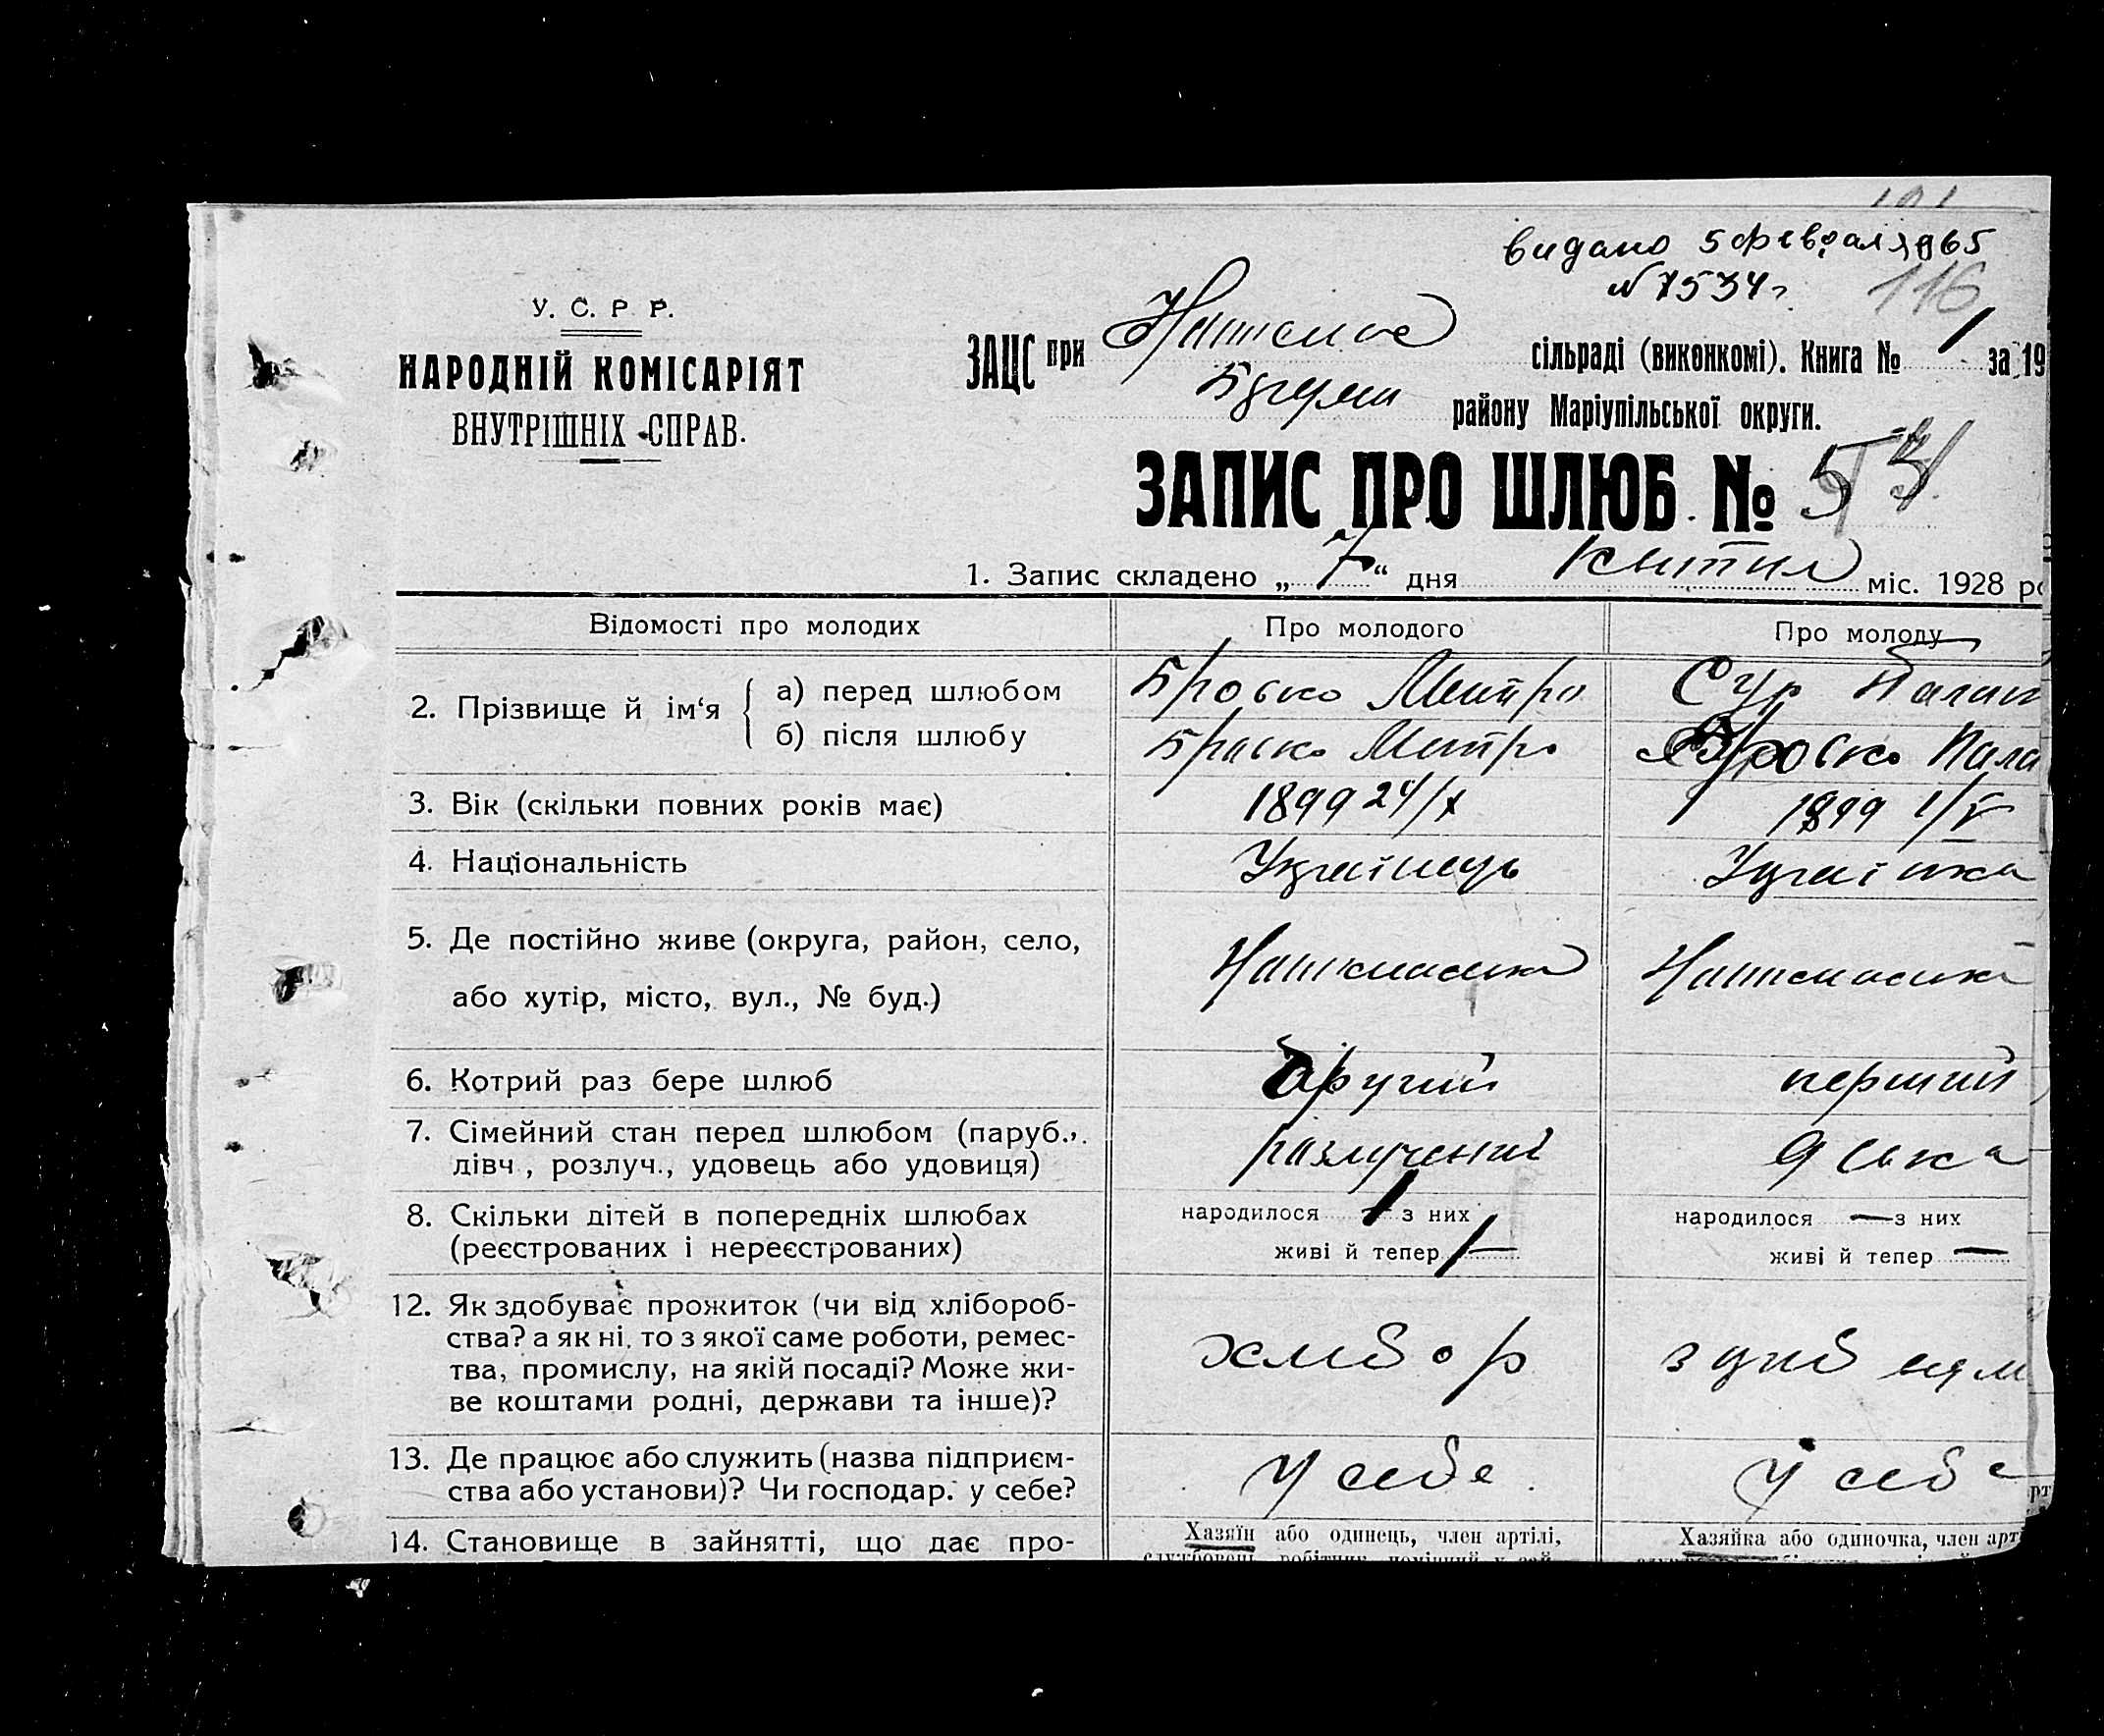 видано 5 февраля 1965
N 7534 г. 116
У. С. Р Р.
НАРОДНІЙ КОМІСАРІЯТ
ВНУТРІШНІХ СПРАВ.
ЗАЦС при сільраді (виконкомі). Книга № 1 за 19
району Маріупільської округи.
ЗАПИС ПРО ШЛЮБ №
1. Запис складено „ 7 “ дня квітня міс. 1928
Відомості про молодих Про молодого Про молоду
2. Прізвище й ім‘я
а) перед шлюбом Бросько Митро Сур
б) після шлюбу Брасько Митро Бросько
3. Вік (скільки повних років має) 1899 24/X 1899 1/V
4. Національність Українець Українка
5. Де постійно живе (округа, район, село,
або хутір, місто, вул., № буд.)
6. Котрий раз бере шлюб другий перший
7. Сімейний стан перед шлюбом (паруб.,
дівч., розлуч., удовець або удовиця) разлучений дівка
8. Скільки дітей в попередніх шлюбах народилося 1 з них народилося — з них
(реєстрованих і нереєстрованих) живі й тепер 1 — живі й тепер —
12. Як здобуває прожиток (чи від хлібороб-
ства? а як ні, то з якої саме роботи, ремес-
тва, промислу, на якій посаді? Може жи-
ве коштами родні, держави та інше)?
хлібор
13. Де працює або служить (назва підприєм-
ства або установи)? Чи господар. у себе? у себе у себе
14. Становище в зайнятті, що дає про- Хазяїн або одинець, член артілі, Хазяйка або одиночка, член арт